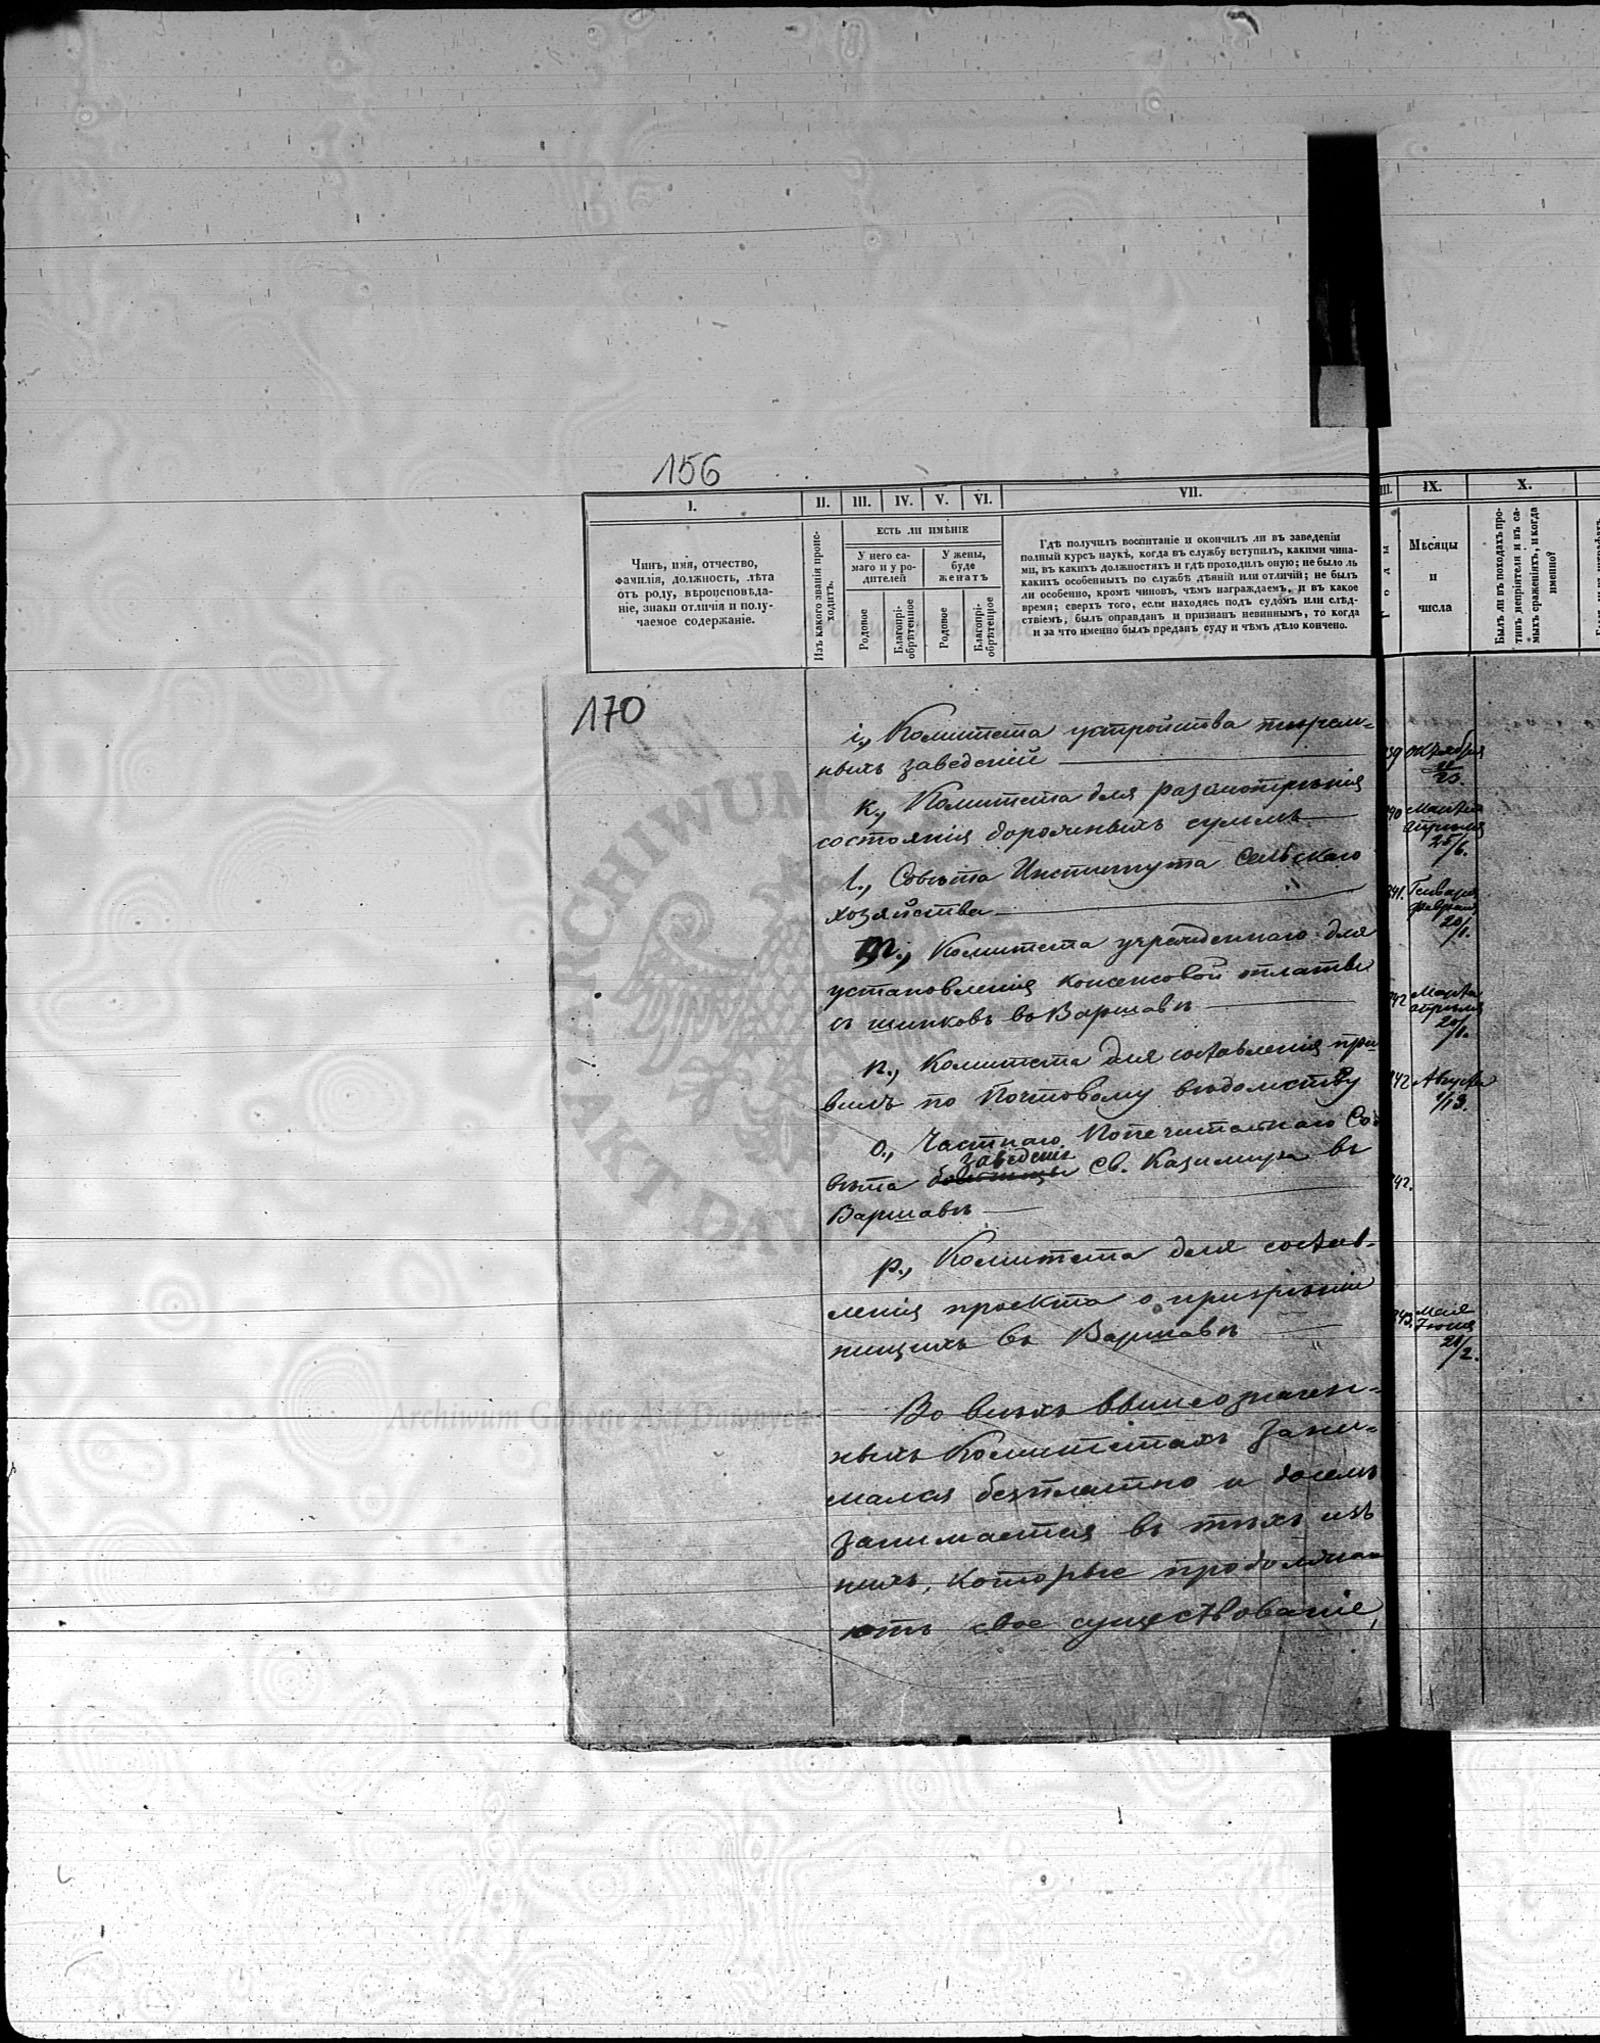 156
I.
II.
III.
IV.
V.
VI.
VII.
III.
IX.
X.
Чинъ, имя, отчество,
фамилія, должность, лѣта
отъ роду, вѣроисповѣда-
ніе, знаки отличія и полу-
чаемое содержаніе.
Изъ какого званія проис-
ходитъ.
ЕСТЬ ЛИ ИМѢНІЕ
У него са-
маго и у ро-
дителей
У жены,
буде
женатъ
Родовое
Благопрі-
обрѣтенное
Родовое
Благопрі-
обрѣтенное
Гдѣ получилъ воспитаніе и окончилъ ли въ заведеніи
полный курсъ наукъ, когда въ службу вступилъ, какими чина-
ми, въ какихъ должностяхъ и гдѣ проходилъ оную; не было ль
какихъ особенныхъ по службѣ дѣяній или отличій; не былъ
ли особенно, кромѣ чиновъ, чѣмъ награждаемъ, и въ какое
время; сверхъ того, если находясь подъ судомъ или слѣд-
ствіемъ, былъ оправданъ и признанъ невиннымъ, то когда
и за что именно былъ преданъ суду и чѣмъ дѣло кончено.
Мѣсяцы
и
числа
Былъ ли въ походахъ про-
тивъ непріятеля и въ са-
мыхъ сраженіяхъ, и когда
именно?
170
i., Комитета устройства тюрем=
ныхъ заведеній
39 Октября
23.
к., Комитета для разсмотрѣнія
состоянія дорожныхъ суммъ
40 Марта
Апрѣля
25/6.
l., Совѣта Института Сельскаго
хозяйства
841. Генваря
Февраля
20/1.
m., Комитета учрежденнаго для
установленія консенсовой платы
съ шинковъ въ Варшавѣ
842 Марта
Апрѣля
20/1.
n., Комитета для составленія пра
вилъ по Почтовому вѣдомству
842 Августа
1/13.
o., Частнаго Попечительнаго Со=
заведенія
вѣта Св. Казимира въ
Варшавѣ
842.
p., Комитета для состав-
ленія проэкта о призрѣніи
нищихъ въ Варшавѣ
843. Мая
Іюня
21/2.
Во всѣхъ вышеозначен-
ныхъ Комитетахъ зани=
мался безплатно и доселѣ
занимается въ тѣхъ изъ
нихъ, которые продолжа
ютъ свое существованіе,
ARCHIWUM
AKT DAW
Archiwum Główne Akt Dawnych